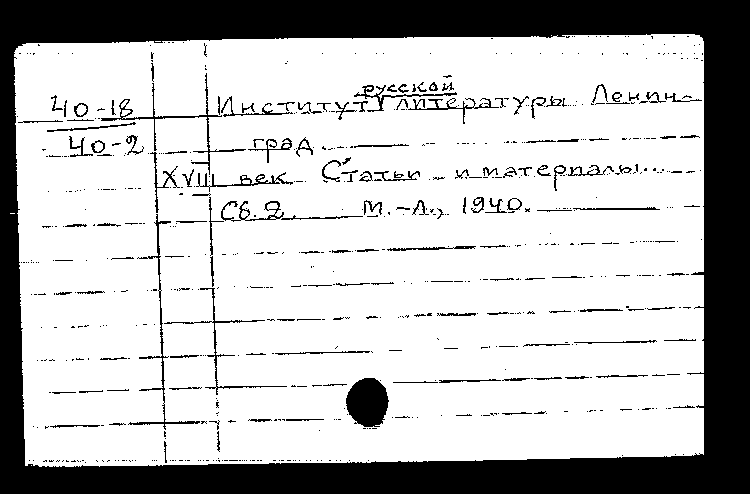 40-18
40-2
Институт русской литературы Ленин-
град.
XVIII век Статьи и материалы...
Сб. 2. М.-Л., 1940.